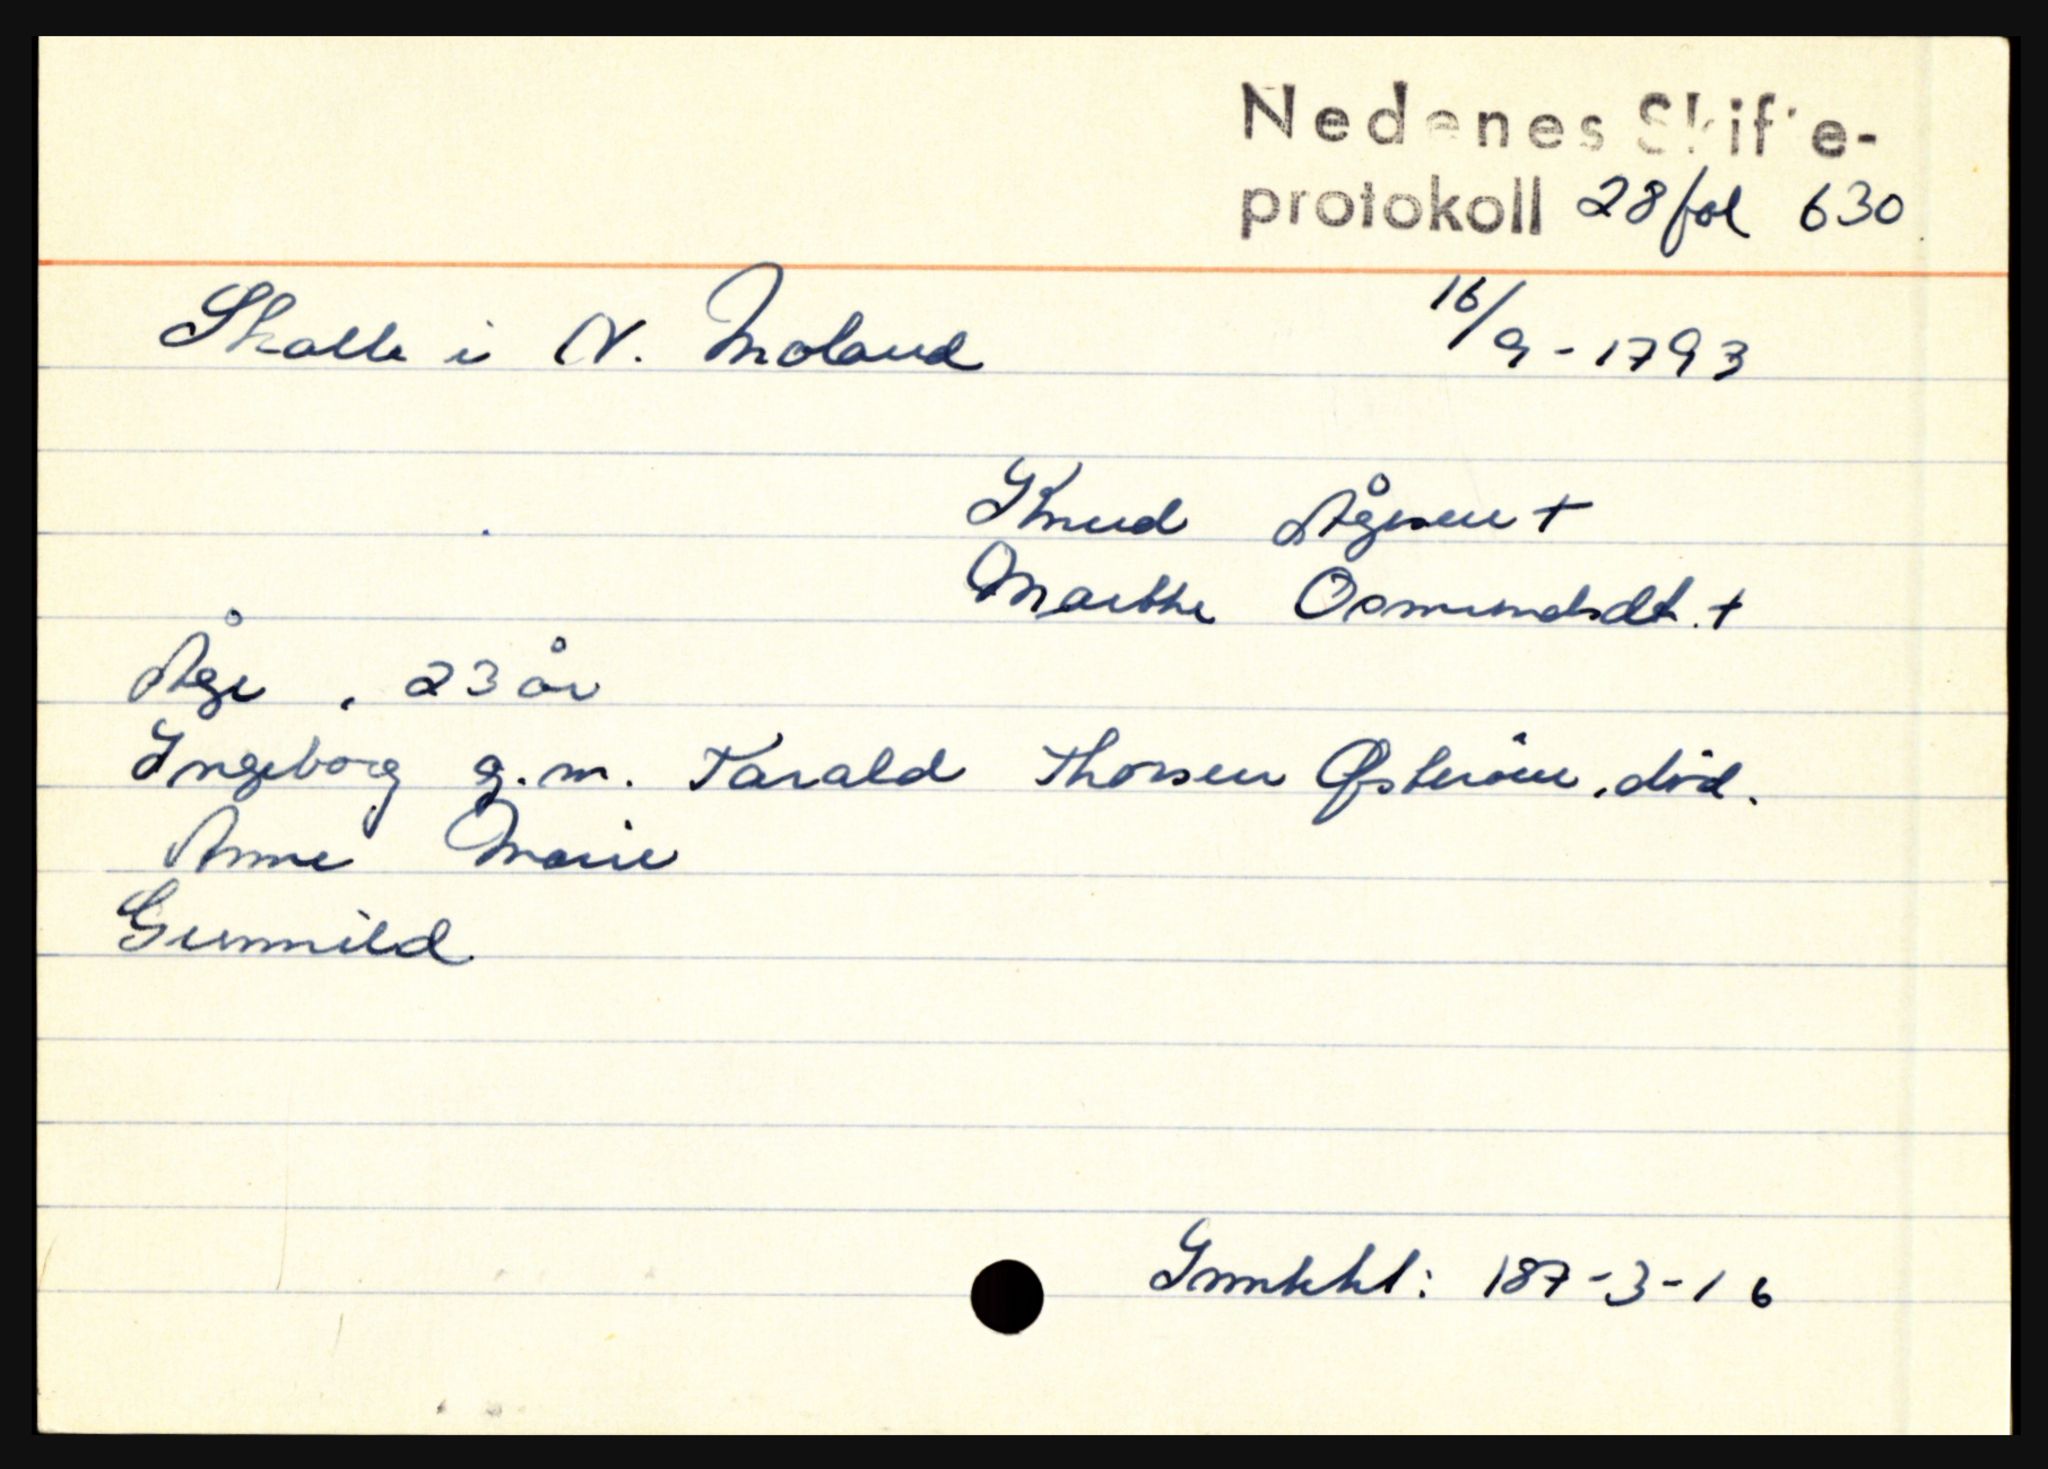 Nedenes Skifte-
protokoll 28 fol 630
Skalle i N. Moland 16/9-1793
Knud Ågesen +
Marthe Osmundsdt. +
Åge , 23 år
Ingeborg g.m. Tarald Thorsen , død.
Anne Marie
Gunnild
187-3-16